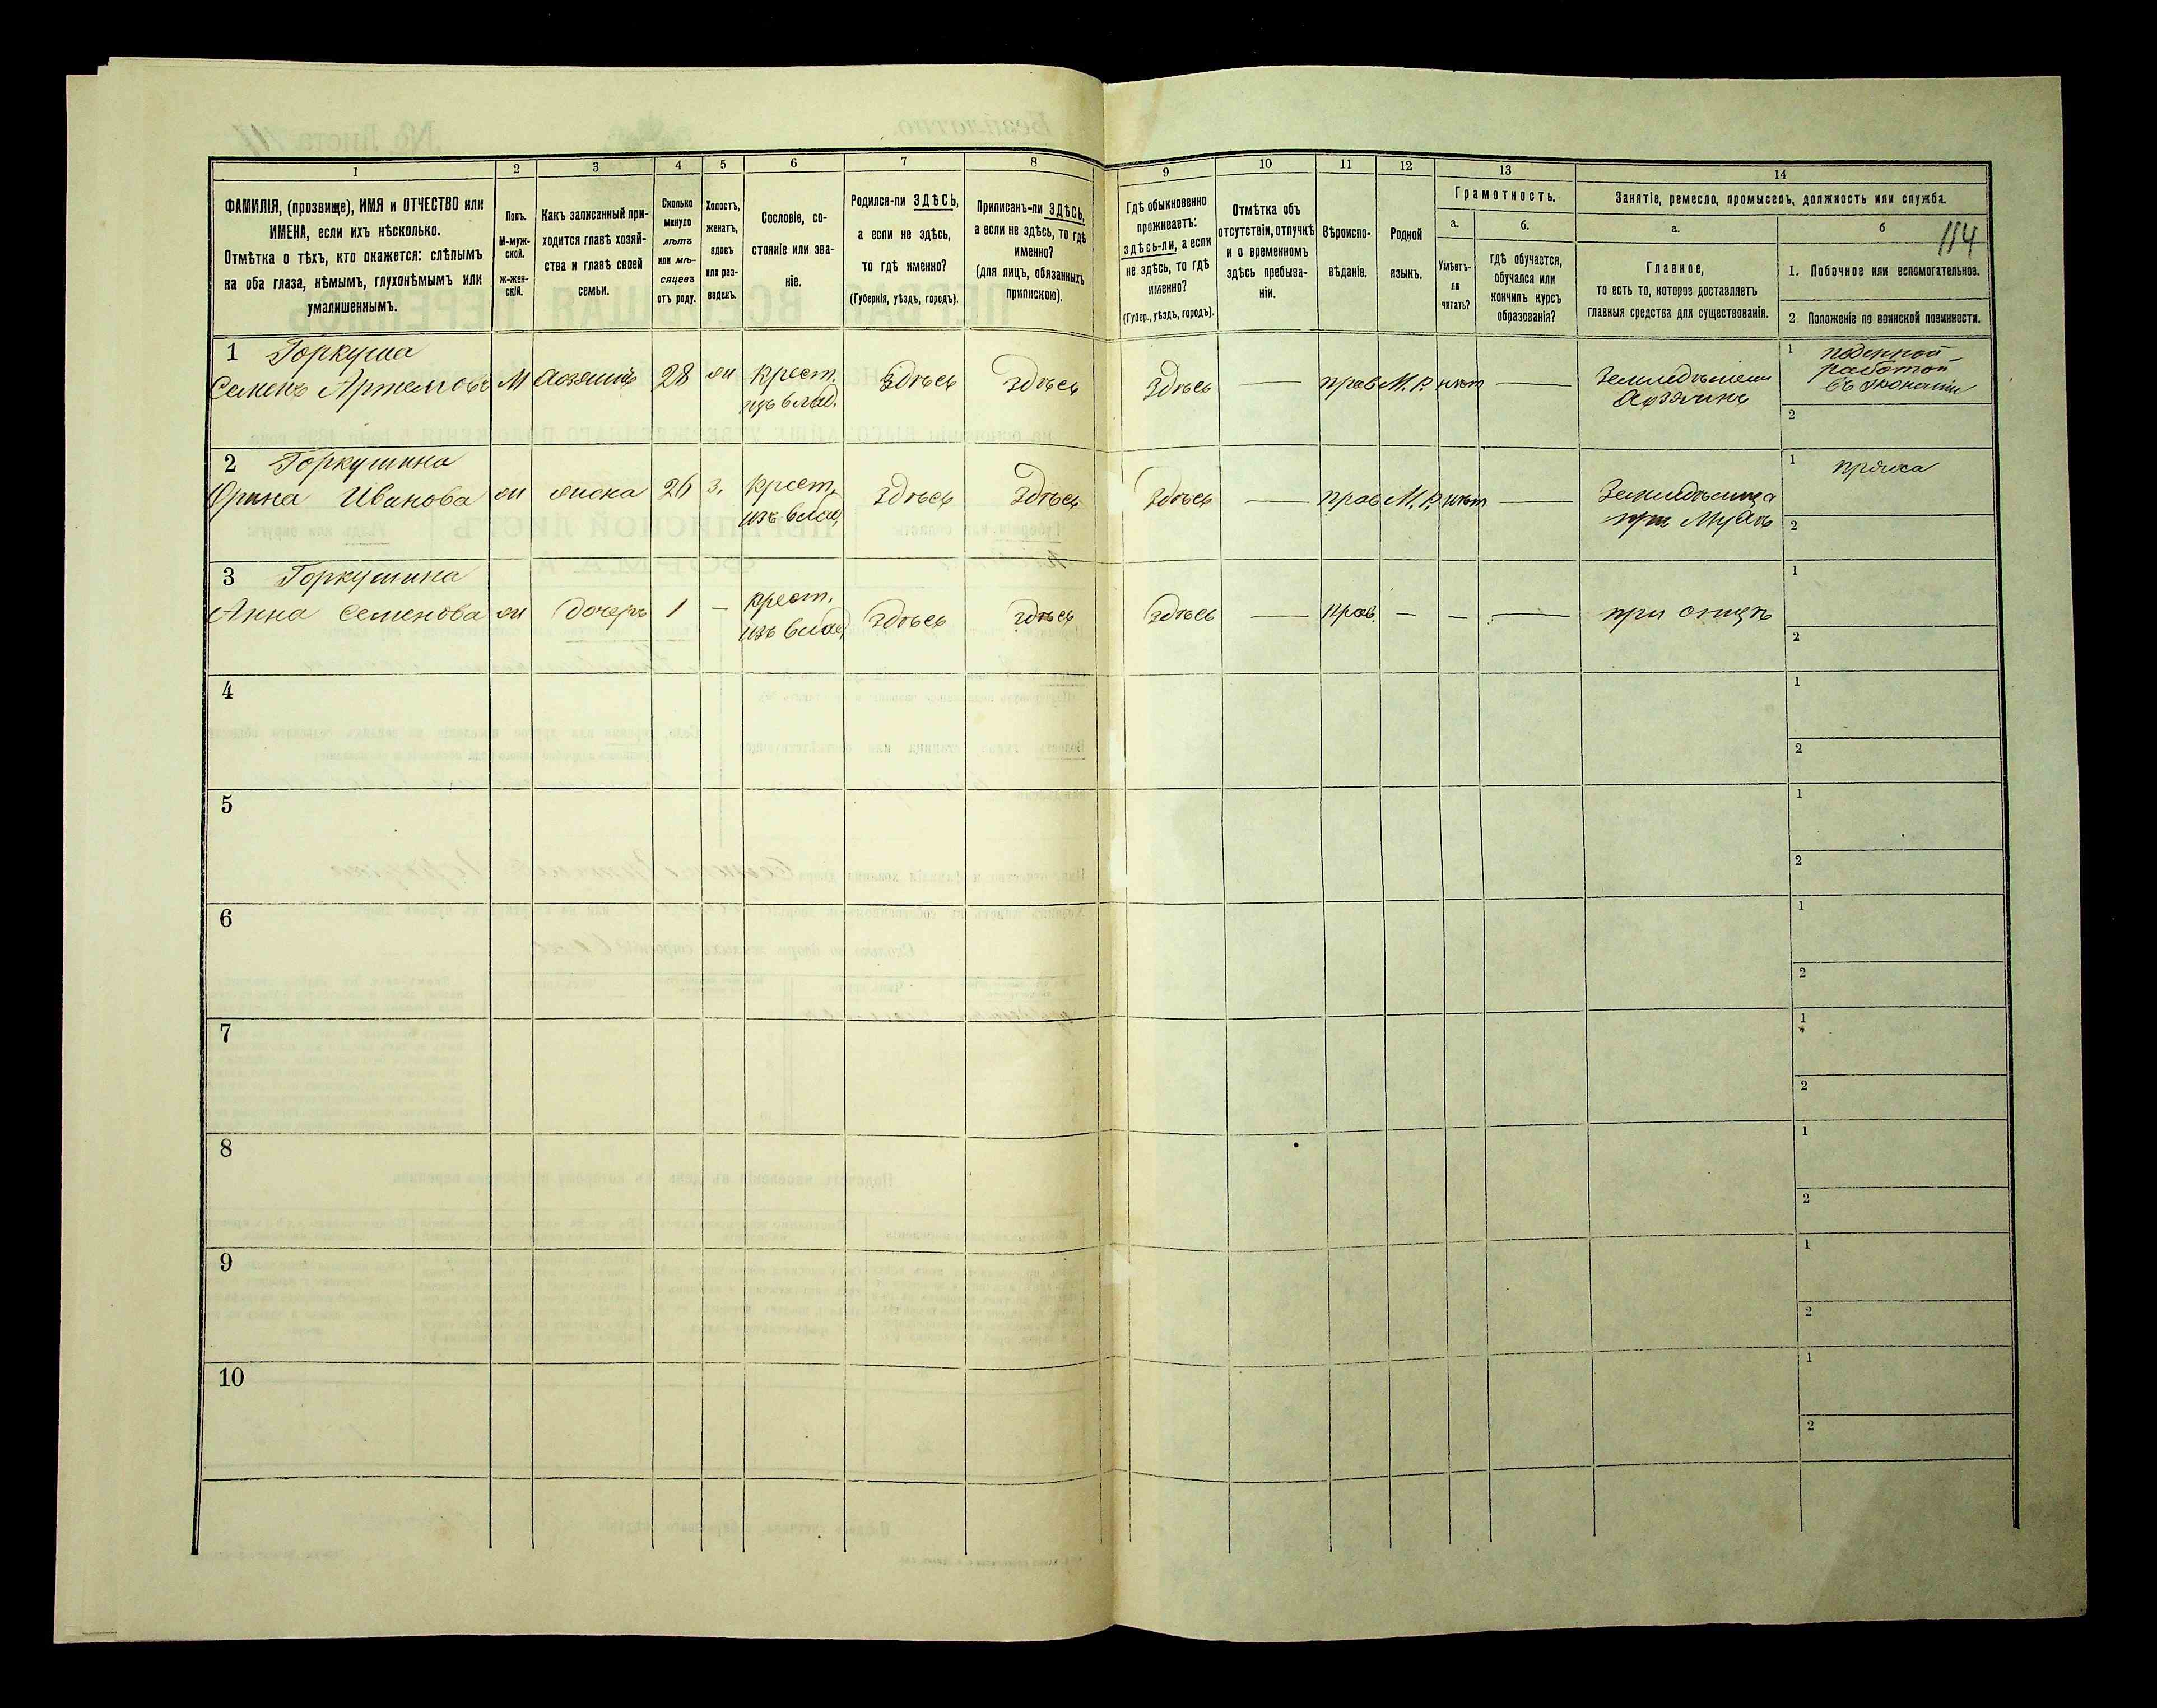 1 2 3 4 5 6 7 8 9 10 11 12 13 14
ФАМИЛІЯ, (прозвище), ИМЯ и ОТЧЕСТВО или
ИМЕНА, если ихъ нѣсколько.
Отмѣтка о тѣхъ, кто окажется: слѣпымъ
на оба глаза, нѣмымъ, глухонѣмымъ или
умалишеннымъ.
Полъ.
М-муж-
ской.
Ж-жен-
скій.
Какъ записанный при-
ходится главѣ хозяй-
ства и главѣ своей
семьи.
Сколько
минуло
лѣтъ
или мѣ-
сяцевъ
отъ роду.
Холостъ,
женатъ,
вдовъ
или раз-
веденъ.
Сословіе, со-
стояніе или зва-
ніе.
Родился-ли ЗДѢСЬ,
а если не здѣсь,
то гдѣ именно?
(Губернія, уѣздъ, городъ).
Приписанъ-ли ЗДѢСЬ,
а если не здѣсь, то гдѣ
именно?
(для лицъ, обязанныхъ
припискою).
Гдѣ обыкновенно
проживаетъ:
здѣсь-ли, а если
не здѣсь, то гдѣ
именно?
(Губер., уѣздъ, городъ).
Отмѣтка объ
отсутствіи, отлучкѣ
и о временномъ
здѣсь пребыва-
ніи.
Вѣроиспо-
вѣданіе.
Родной
языкъ.
Грамотность.
а.
Умѣетъ-
ли
читать?
б.
гдѣ обучается,
обучался или
кончилъ курсъ
образованія?
Занятіе, ремесло, промыселъ, должность или служба.
а.
Главное,
то есть то, которое доставляетъ
главныя средства для существованія.
б
114
1. Побочное или вспомогательное.
2. Положеніе по воинской повинности.
1 Горкуша
Семенъ Артемовъ М Хозяинъ 28 ж крест. здѣсь здѣсь здѣсь — прав М.Р. нѣт —
изъ влад.
Хозяинъ
1 поденной
работой
въ Экономіи
2
2 Горкушина
Орина Иванова ж жена 26 з. крест. здѣсь здѣсь здѣсь — прав М.Р. нѣт —
изъ влад.
при Мужѣ
1 пряха
2
3 Горкушина
Анна Семенова ж дочерь 1 — крест. здѣсь здѣсь здѣсь — прав. — — — при отцѣ
изъ влад.
1
2
4
1
2
5
1
2
6
1
2
7
1
2
8
1
2
9
1
2
10
1
2